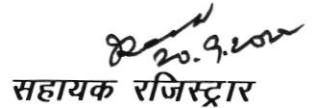 20.9.2022
सहायक रजिस्ट्रार